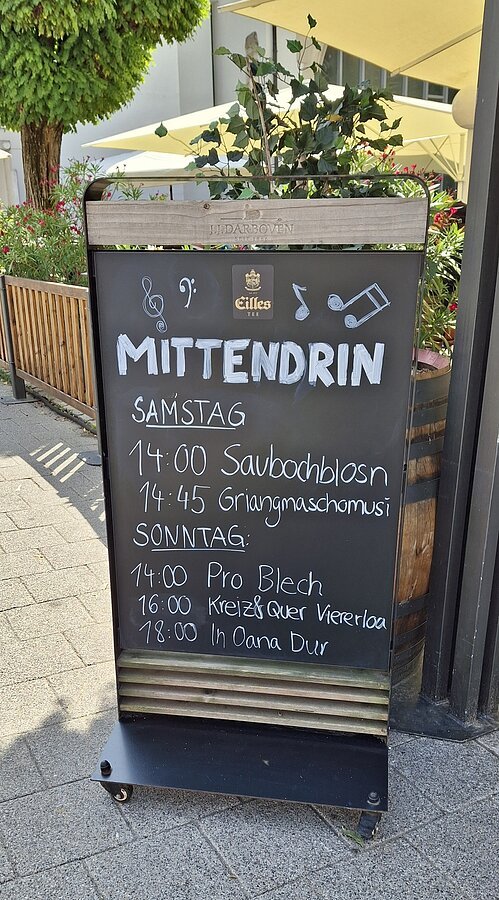 J.J.DARBOVEN
Eilles
TEE
MITTENDRIN
SAMSTAG
14:00 Saubochblosn
14:45 Griangmaschomusi
SONNTAG:
14:00 Pro Blech
16:00 Kreiz& Quer Viererloa
18:00 In Oana Dur